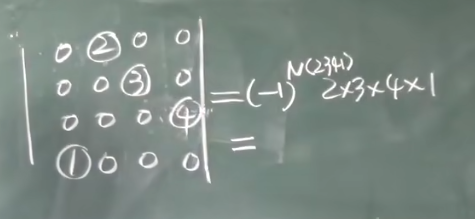 0 ② 0 0
0 0 ③ 0
0 0 0 ④
① 0 0 0
=(-1)^N(2341) 2×3×4×1
=